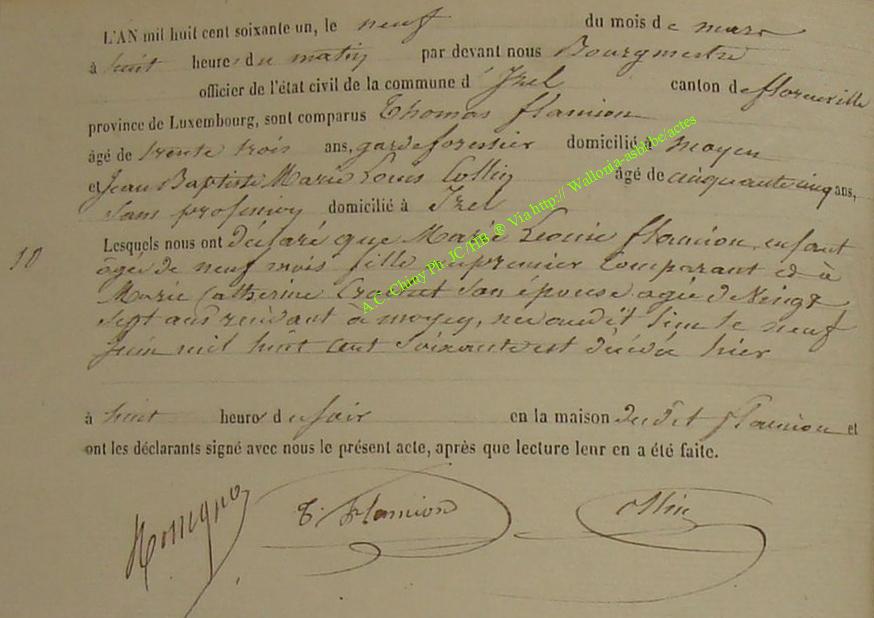 L'AN mil huit cent soixante un, le neuf du mois de mars
à huit heures du matin par devant nous Bourgmestre
officier de l'état civil de la commune d'Izel canton de florenville
province de Luxembourg, sont comparus Thomas flamion
âgé de trente trois ans, garde forestier domicilié à moyen
et Jean Baptiste Marie Louis Collin âgé de cinquante cinq ans,
sans profession domicilié à Izel
10 Lesquels nous ont déclaré que Marie Leonie flamion, enfant
âgée de neuf mois fille du premier Comparant et à
Marie Catherine son épouse agée de Vingt
sept ans résidant à moyen, née audit lieu le neuf
juin mil huit cent soixante est décédée hier
à huit heures du soir en la maison dudit flamion et
ont les déclarants signé avec nous le présent acte, après que lecture leur en a été faite.
T. Flamion Collin
A.C. Chiny Ph. JC /HB ® Via http:// Wallonia-asbl.be/actes